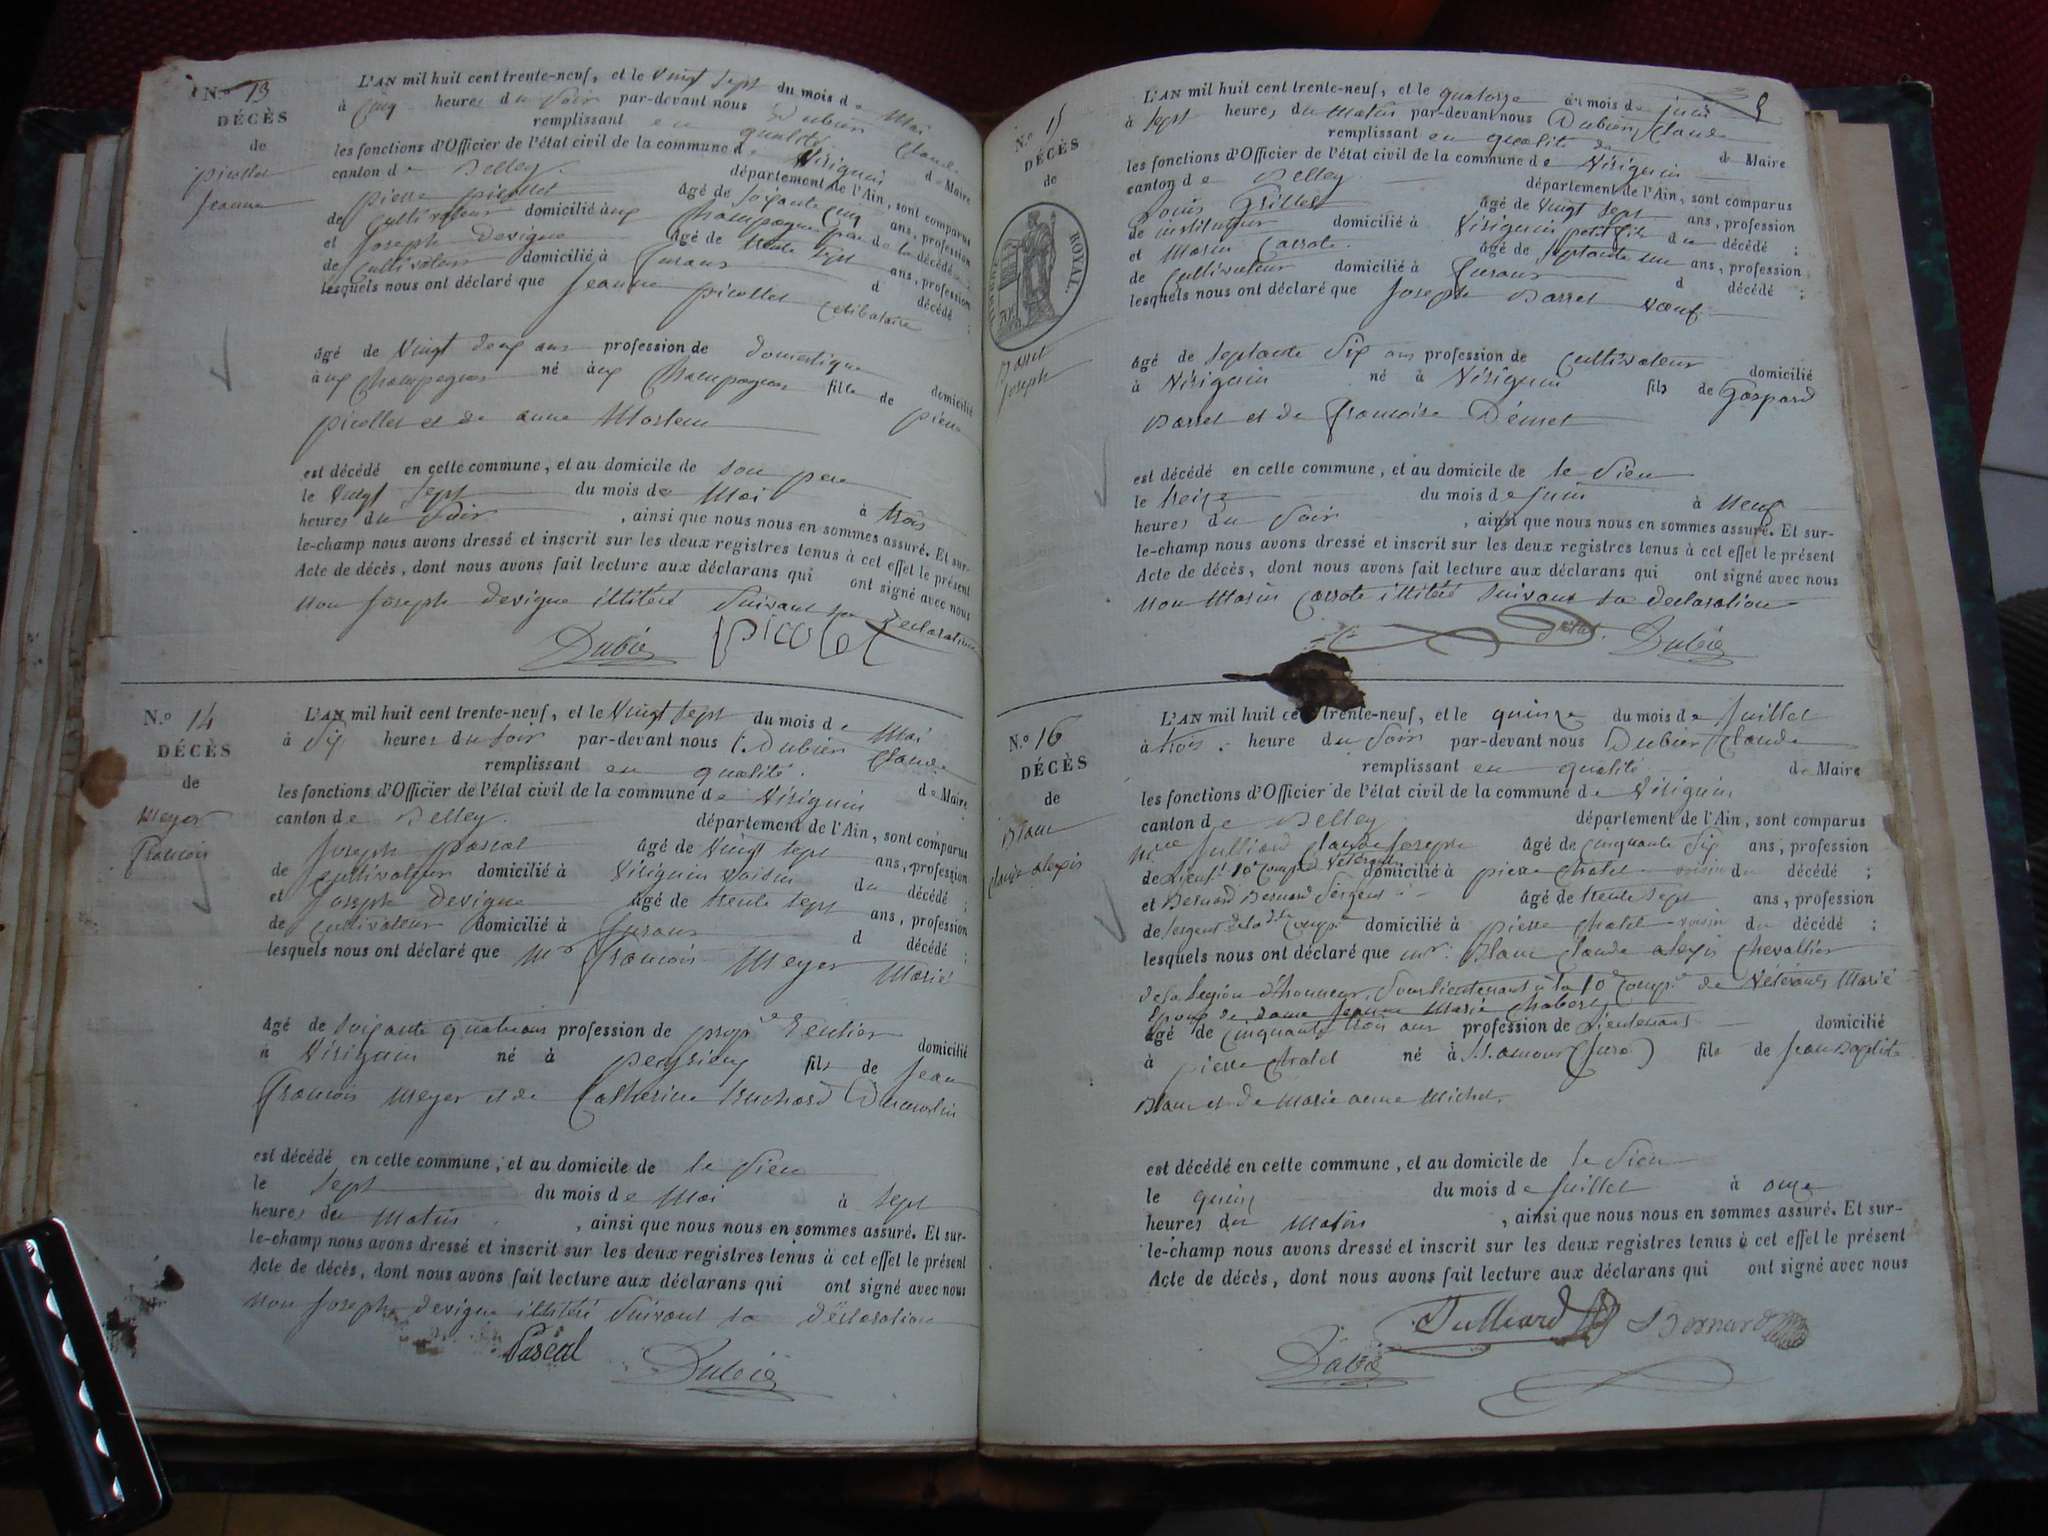 N.º 13
DÉCÈS
de
picollet
Jeanne
L'AN mil huit cent trente-neuf, et le Vingt Sept du mois de Mai
à Cinq heures du Soir par-devant nous Dubien Claude
remplissant en qualité de Maire
les fonctions d'Officier de l'état civil de la commune de Virignin
canton de Belley département de l'Ain, sont comparus
pierre picollet âgé de Soixante Cinq ans, profession
de Cultivateur domicilié aux Champagnes père de la décédée
et Joseph Devigne âgé de trente Sept ans, profession
de Cultivateur domicilié à d décédé ;
lesquels nous ont déclaré que Jeanne picollet Célibataire
âgé de Vingt deux ans profession de domestique domicilié
aux Champagnes né aux Champagnes fille de pierre
picollet et de anne
est décédé en cette commune, et au domicile de son père
le Vingt Sept du mois de Mai à trois
heures du Soir , ainsi que nous nous en sommes assuré. Et sur-
le-champ nous avons dressé et inscrit sur les deux registres tenus à cet effet le présent
Acte de décès, dont nous avons fait lecture aux déclarans qui ont signé avec nous
non Joseph devigne illitéré Suivant sa Déclaration
Dubien picolet
N.º 14
DÉCÈS
de
Meyer
François
L'AN mil huit cent trente-neuf, et le Vingt Sept du mois de Mai
à Six heures du Soir par-devant nous Dubien Claude
remplissant en qualité de Maire
les fonctions d'Officier de l'état civil de la commune de Virignin
canton de Belley département de l'Ain, sont comparus
Joseph pascal âgé de Vingt Sept ans, profession
de Cultivateur domicilié à Virignin voisin du décédé ;
et Joseph Devigne âgé de trente Sept ans, profession
de Cultivateur domicilié à d décédé ;
lesquels nous ont déclaré que Mr François Meyer Marié
âgé de Soixante quatre ans profession de prop.re Rentier domicilié
à Virignin né à peyrieux fils de Jean
François Meyer et de Catherine
est décédé en cette commune, et au domicile de le Sien
le Sept du mois de Mai à Sept
heures du Matin , ainsi que nous nous en sommes assuré. Et sur-
le-champ nous avons dressé et inscrit sur les deux registres tenus à cet effet le présent
Acte de décès, dont nous avons fait lecture aux déclarans qui ont signé avec nous
non Joseph devigne illitéré Suivant sa Déclaration
Pascal Dubien
5
N.º 15
DÉCÈS
de
ROYAL.
Barret
Joseph
L'AN mil huit cent trente-neuf, et le quatorze du mois de juin
à Sept heures du Matin par-devant nous Dubien Claude
remplissant en qualité de Maire
les fonctions d'Officier de l'état civil de la commune de Virignin
canton de Belley département de l'Ain, sont comparus
Louis Grillet âgé de Vingt Sept ans, profession
de instituteur domicilié à Virignin petit fils du décédé ;
et Marin Carrote âgé de Septante un ans, profession
de Cultivateur domicilié à d décédé ;
lesquels nous ont déclaré que Joseph Barret Vœuf
âgé de Septante Six ans profession de Cultivateur domicilié
à Virignin né à Virignin fils de Gaspard
Barret et de Françoise
est décédé en cette commune, et au domicile de le Sien
le treize du mois de juin à neuf
heures du Soir , ainsi que nous nous en sommes assuré. Et sur-
le-champ nous avons dressé et inscrit sur les deux registres tenus à cet effet le présent
Acte de décès, dont nous avons fait lecture aux déclarans qui ont signé avec nous
non Marin Carrote illitéré Suivant sa déclaration
Dubien
N.º 16
DÉCÈS
de
Blanc
Claude alexis
L'AN mil huit cent trente-neuf, et le quinze du mois de Juillet
à trois heure du Soir par-devant nous Dubien Claude
remplissant en qualité de Maire
les fonctions d'Officier de l'état civil de la commune de Virignin
canton de Belley département de l'Ain, sont comparus
Julliard Claude Joseph âgé de cinquante Six ans, profession
de Lieut.t 10e Comp.e Vétérans domicilié à pierre Chatel voisin du décédé ;
et Bernard Bernard Sergent âgé de trente Sept ans, profession
de Sergent de la dite Comp.e domicilié à pierre Chatel voisin du décédé ;
lesquels nous ont déclaré que mr. Blanc Claude alexis Chevallier
de la Légion d'honneur, Sous lieutenant à la 10e Comp.e de Vétérans Marié
Epoux de Dame Jeanne Marie Chabert
âgé de Cinquante trois ans profession de Lieutenant domicilié
à pierre Chatel né à St. amour (Jura) fils de Jean Baptiste
Blanc et de Marie anne Michel.
est décédé en cette commune, et au domicile de le Sien
le quinze du mois de Juillet à onze
heures du Matin , ainsi que nous nous en sommes assuré. Et sur-
le-champ nous avons dressé et inscrit sur les deux registres tenus à cet effet le présent
Acte de décès, dont nous avons fait lecture aux déclarans qui ont signé avec nous
Julliard Bernard
Dubien